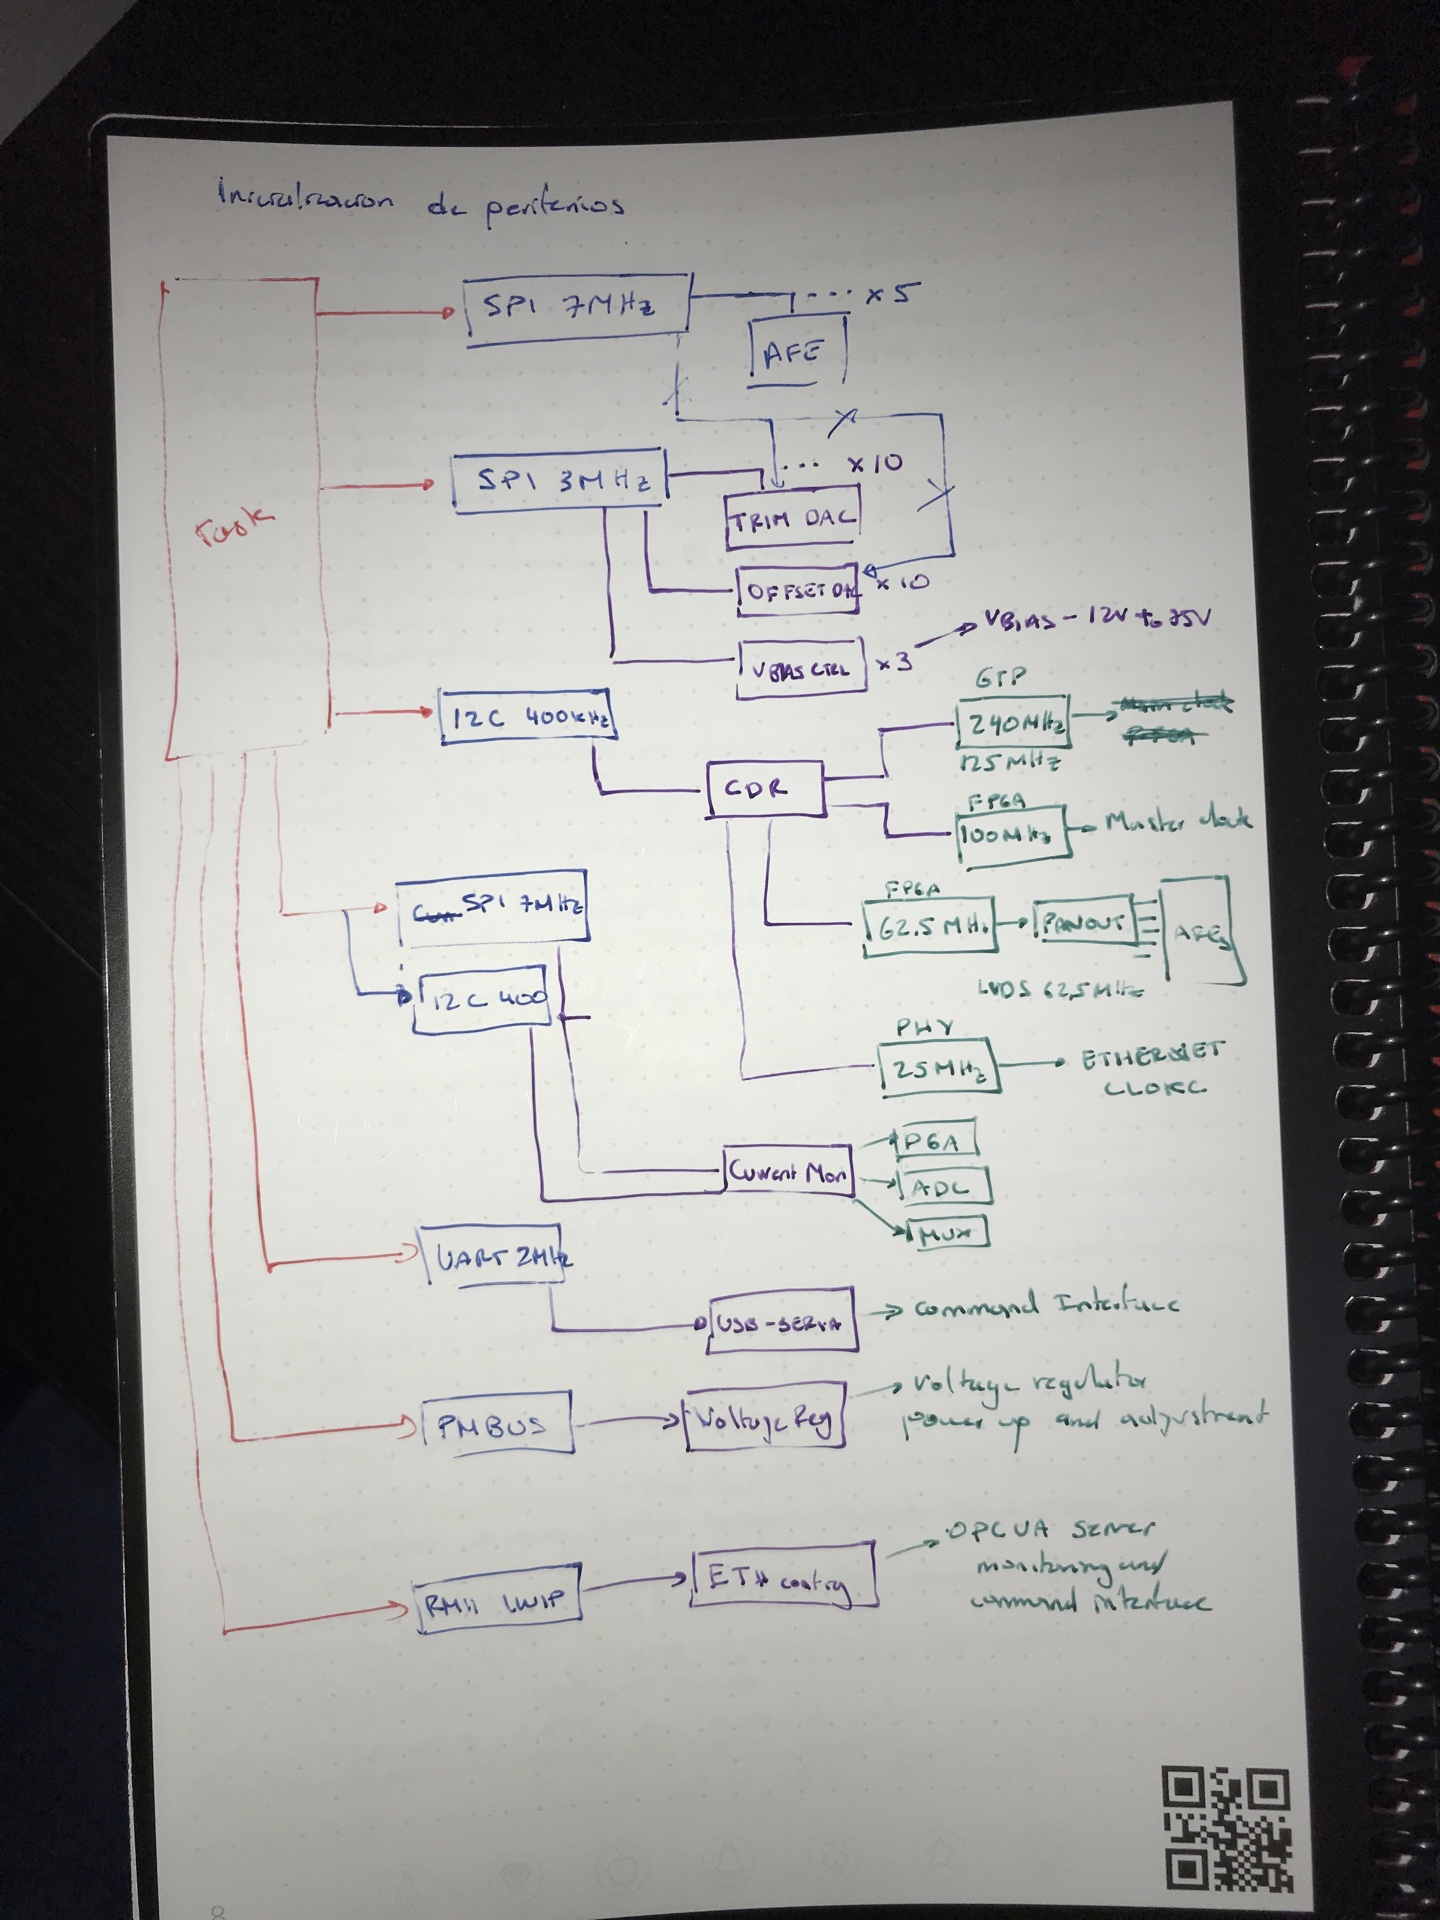 Inicializacion de perifericos
SPI 7MHz
... x5
AFE
SPI 3MHz
... x10
TRIM DAC
Task
OFFSET DAC
x10
VBIAS CTRL
x3
VBIAS - 12V to 75V
I2C 400kHz
GTP
240MHz
125MHz
CDR
FPGA
100MHz
Master clock
SPI 7MHz
FPGA
62.5 MHz
FANOUT
AFEs
I2C 400
LVDS 62,5MHz
PHY
25MHz
ETHERNET
CLOKC
Current Mon
PGA
ADC
MUX
UART 2MHz
USB-SERIAL
command Interface
PMBUS
Voltage Reg
Voltage regulator
power up and adjustment
RMII LWIP
ETH config
OPC UA Server
monitoring and
command interface
8